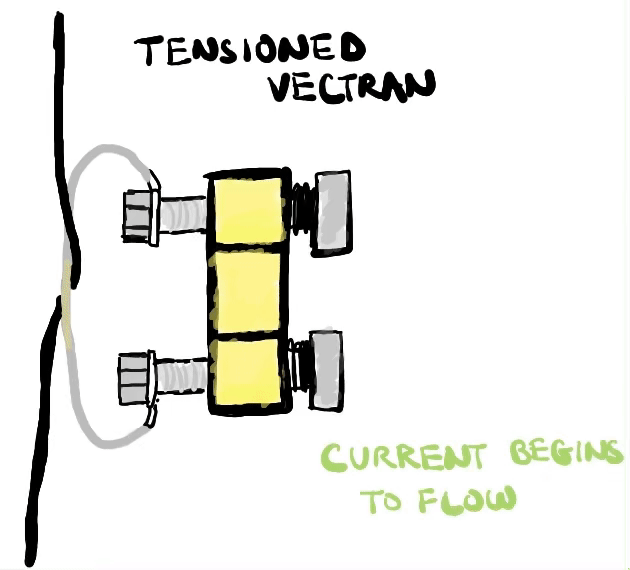 TENSIONED
VECTRAN
CURRENT BEGINS
TO FLOW